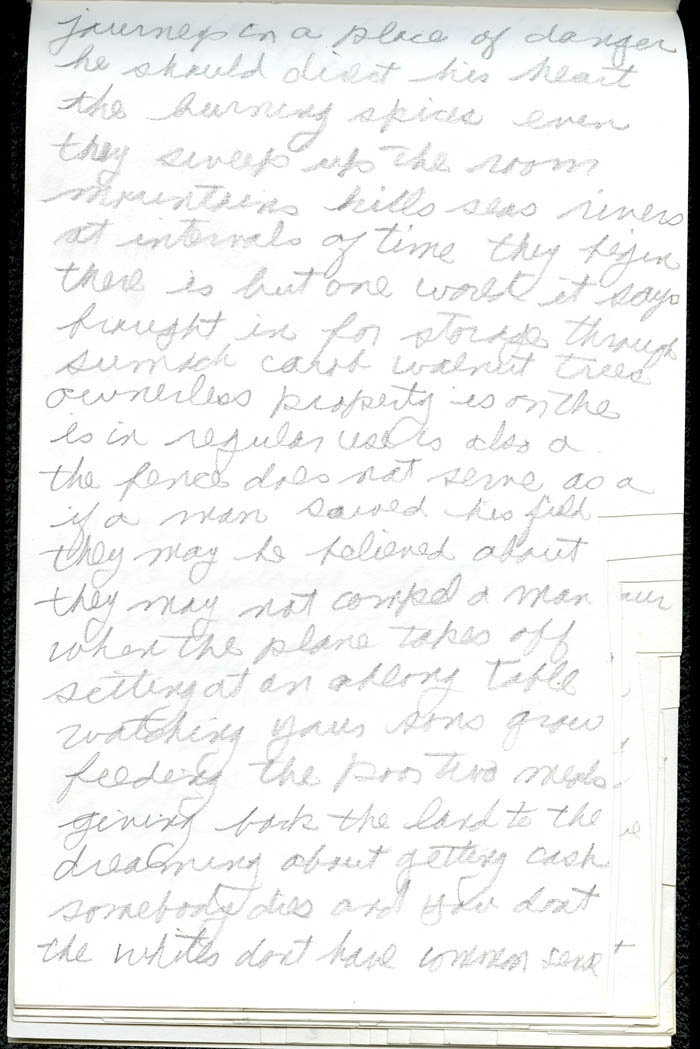 journeys in a place of danger
he should direct his heart
the burning spices even
they sweep up the room
mountains hills seas rivers
at intervals of time they begin
there is but one world it says
brought in for storage through
sumach carob walnut trees
ownerless property is on the
is in regular use is also a
the fence does not serve as a
if a man sowed his field
they may be believed about
they may not compel a man
when the plane takes off
sitting at an oblong table
watching your sons grow
feeding the poor two meals
giving back the land to the
dreaming about getting cash
somebody dies and you dont
the whites dont have common sense